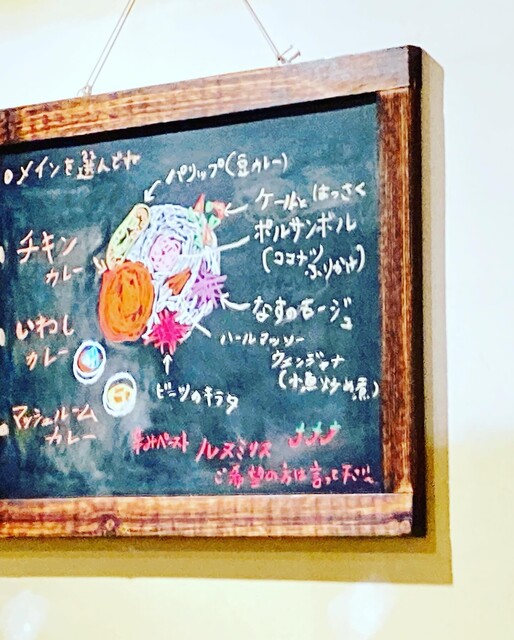 メインを選んでね
パリップ(豆カレー)
ケールとはっさく
チキン
カレー
ポルサンボル
(ココナツ
ふりかけ)
なすのモージュ
いわし
カレー
ハールマッソー
(小魚炒め煮)
ビーツのキラタ
マッシュルーム
カレー
辛みペースト ルヌミリス
ご希望の方は言って下さい